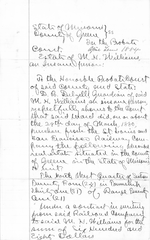 State of Missouri
County of Greene
In the Probate
Court
Estate of M. H. Williams
an Insane person
To the Honorable Probate Court
of said County and State
M. H. Williams an insane person
respectfully shows to the Court
that said ward did on or about
the 29th day of March 1871
purchase from the St Louis and
San Francisco Railway Com-
pany the following described
real estate situate in the County
of Greene in the State of Missouri
to wit
The North West quarter of Section
in Township
of Range Twenty
One (21)
Under a contract in writing
from said Railroad Company
to said M. H. Williams on the
sum of Six Hundred and
Eight Dollars